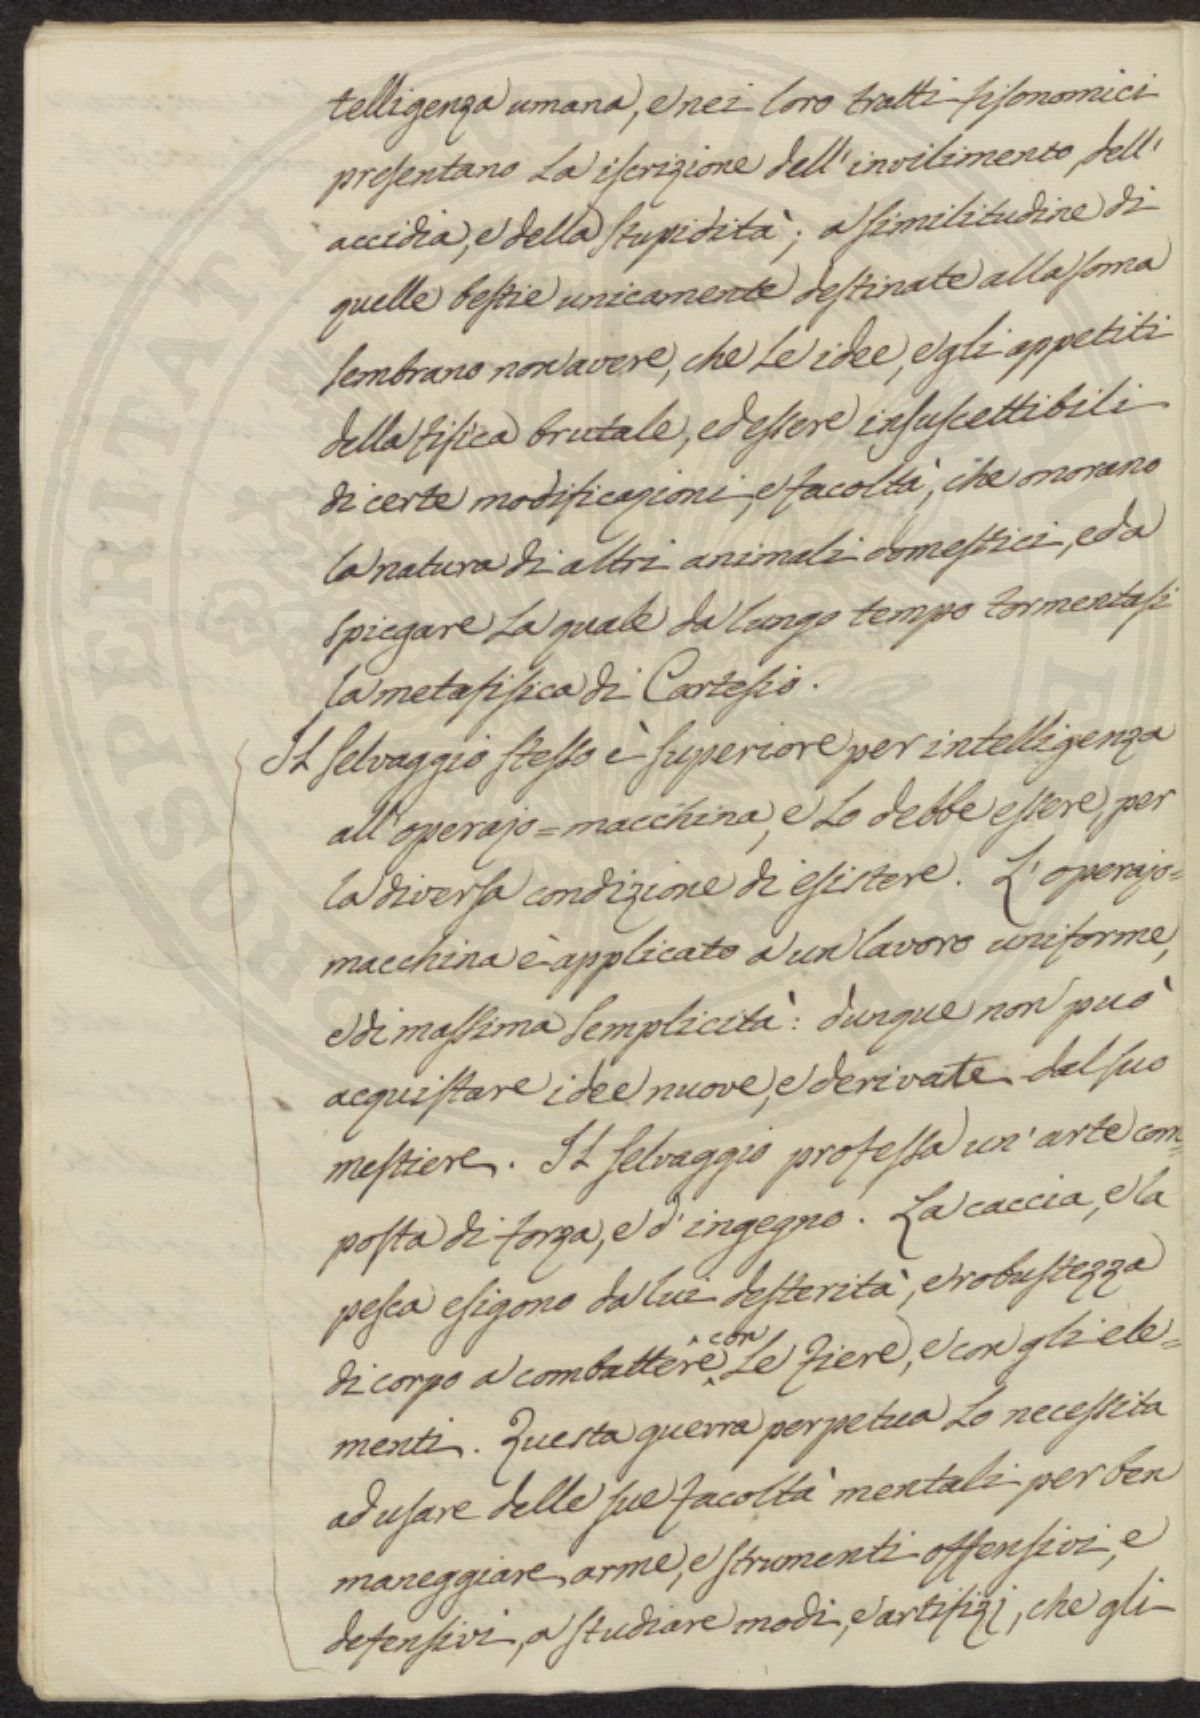 telligenza umana, e nei loro tratti fisonomici
presentano la iscrizione dell'invilimento, dell'
accidia, e della stupidità; a similitudine di
quelle bestie unicamente destinate alla soma
sembrano non avere, che le idee, e gli appetiti
della fisica brutale, ed essere insuscettibili
di certe modificazioni, e facoltà, che onorano
la natura di altri animali domestici, ed a
spiegare la quale da lungo tempo tormentasi
la metafisica di Cartesio.
Il selvaggio stesso è superiore per intelligenza
all'operajo=macchina, e lo debbe essere, per
la diversa condizione di esistere. L'operajo=
macchina è applicato a un lavoro uniforme,
e di massima semplicità: dunque non può
acquistare idee nuove, e derivate dal suo
mestiere. Il selvaggio professa un'arte com=
posta di forza, e d'ingegno. La caccia, e la
pesca esigono da lui desterità, e robustezza
di corpo a combattere con le fiere, e con gli ele=
menti. Questa guerra perpetua lo necessita
ad usare delle sue facoltà mentali per ben
maneggiare arme, e strumenti offensivi, e
defensivi, a studiare modi, e artifizj, che gli
PROSPERITATI PUBLICAE AUGENDAE